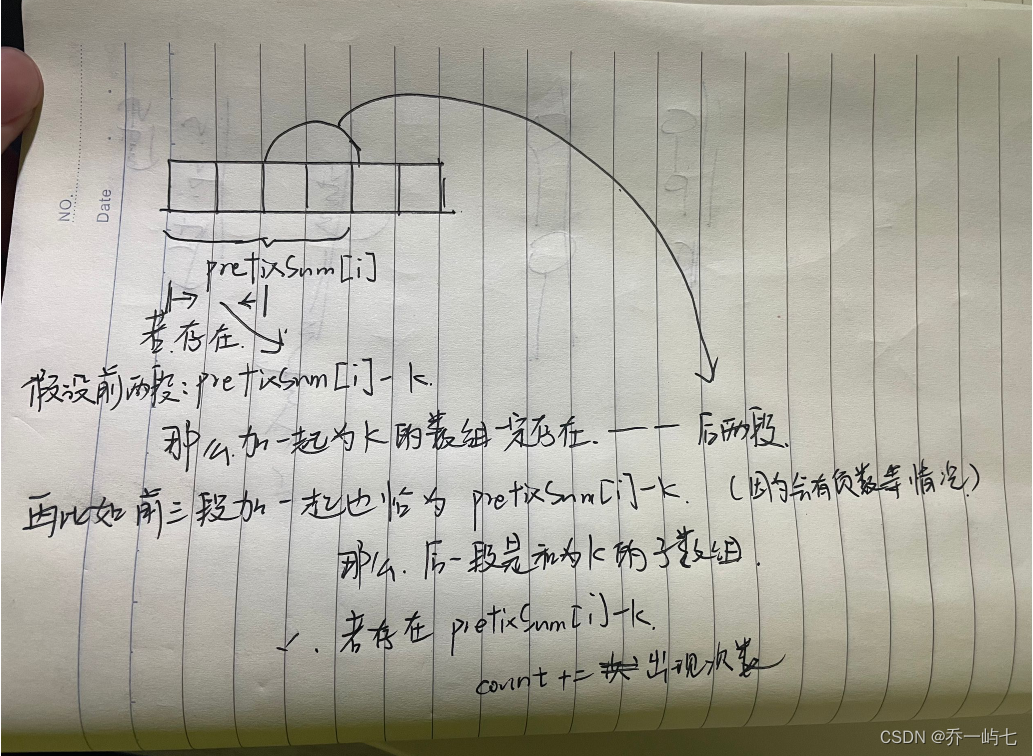 NO.
Date
prefixSum[i]
若存在.
假设前两段: prefixSum[i] - k.
那么.加一起为k的数组一定存在. —— 后两段.
再比如前三段加一起也恰为 prefixSum[i]-k. (因为会有负数等情况)
那么. 后一段是和为k的子数组.
∴. 若存在 prefixSum[i]-k.
count += 出现次数
CSDN @乔一屿七